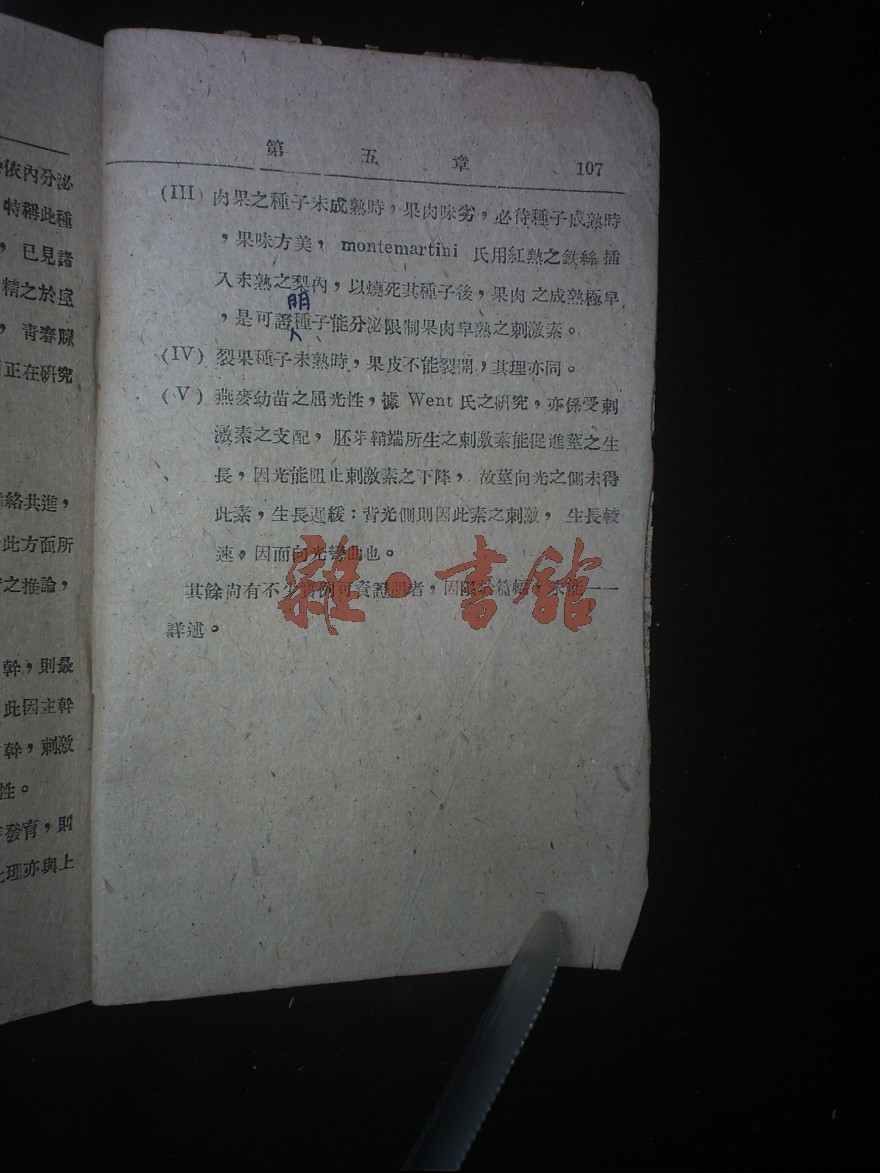 第五章 107
(III) 肉果之種子未成熟時，果肉味劣，必待種子成熟時
，果味方美， montemartini 氏用紅熱之鉄絲插
入未熟之梨內，以燒死其種子後，果肉之成熟極早
明
，是可證種子能分泌限制果肉早熟之刺激素。
(IV) 裂果種子未熟時，果皮不能裂開，其理亦同。
(V) 燕麥幼苗之屈光性，據 Went 氏之研究，亦係受刺
激素之支配，胚芽鞘端所生之刺激素能促進莖之生
長，因光能阻止刺激素之下降，故莖向光之側未得
此素，生長遲緩：背光側則因此素之刺激，生長較
速，因而向光彎曲也。
其餘尚有不少實例可資證明者，因限於篇幅，未能一一
詳述。
雜·書館
依內分泌
特稱此種
，已見諸
精之於
，青春腺
正在研究
絡共進，
此方面所
之推論，
幹，則最
此因主幹
幹，刺激
性。
發育，則
理亦與上